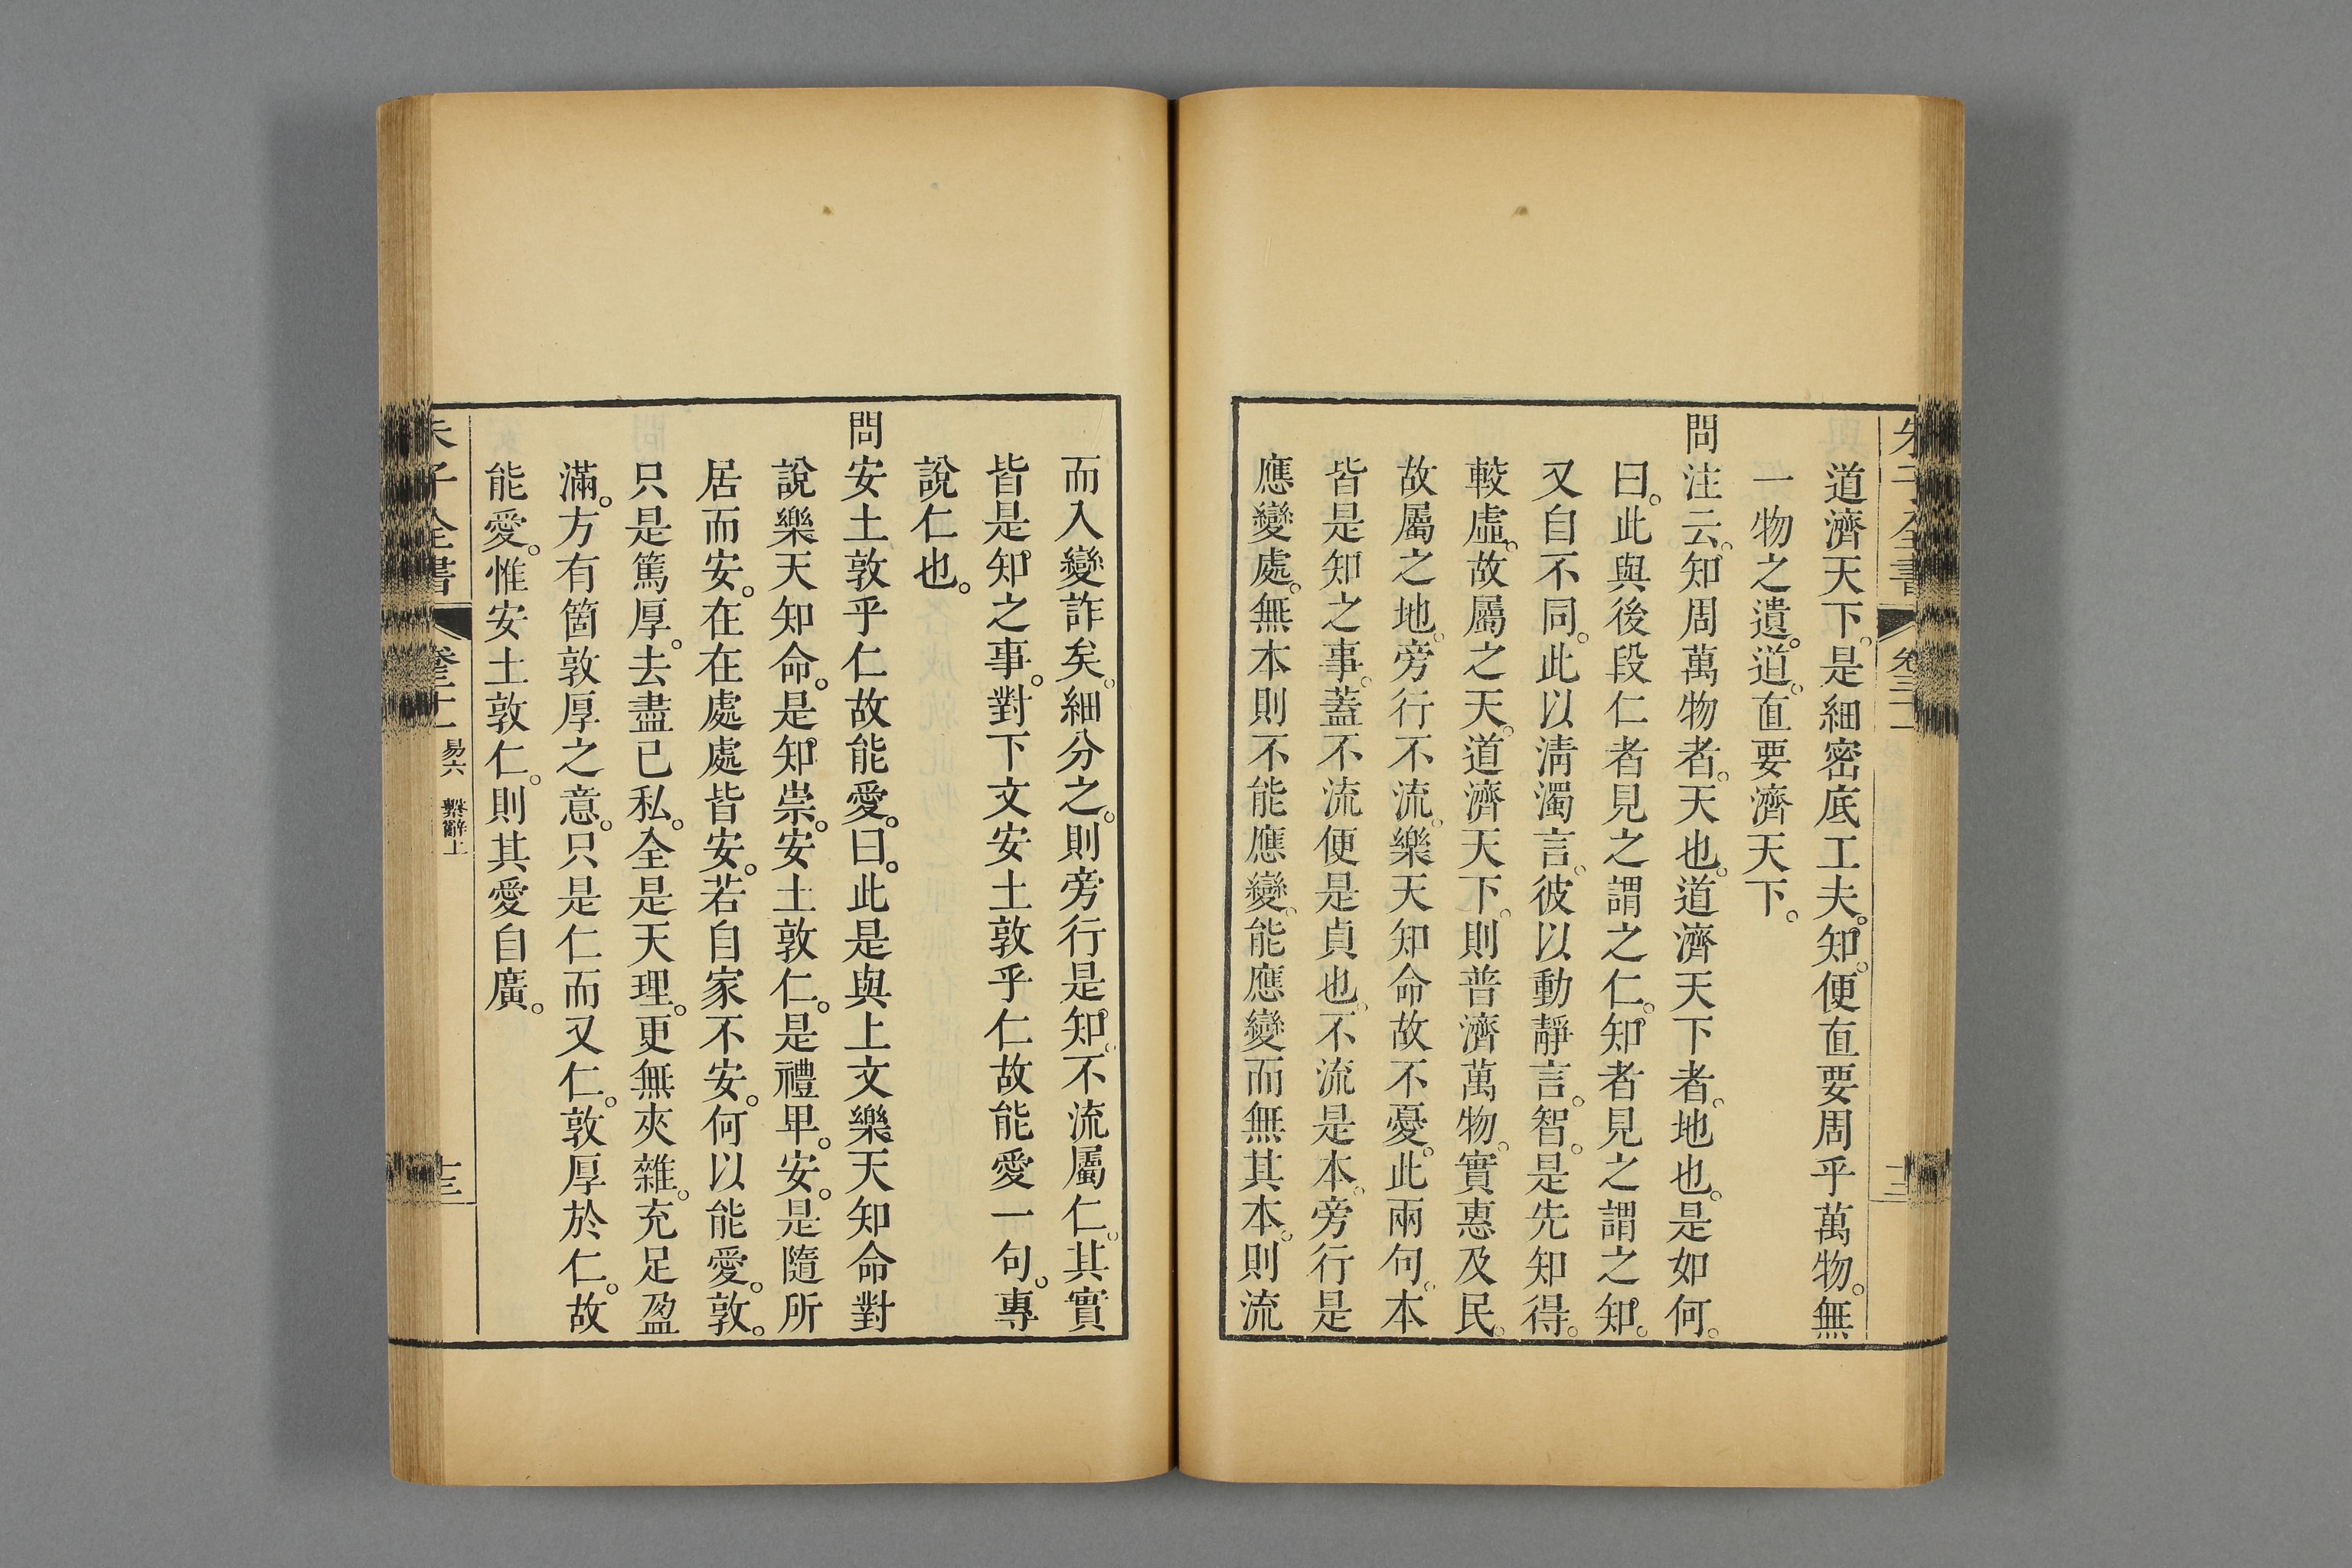 道濟天下。是細密底工夫。知。便直要周乎萬物。無
一物之遺。道。直要濟天下。
問注云。知周萬物者。天也。道濟天下者。地也。是如何。
曰。此與後段仁者見之謂之仁。知者見之謂之知。
又自不同。此以淸濁言。彼以動靜言。智。是先知得。
較虛。故屬之天。道濟天下。則普濟萬物。實惠及民。
故屬之地。旁行不流。樂天知命故不憂。此兩句。本
皆是知之事。蓋不流便是貞也。不流是本。旁行是
應變處。無本則不能應變。能應變而無其本。則流
而入變詐矣。細分之。則旁行是知。不流屬仁。其實
皆是知之事。對下文安土敦乎仁故能愛一句。專
說仁也。
問安土敦乎仁故能愛。曰。此是與上文樂天知命對
說樂天知命。是知崇。安土敦仁。是禮卑。安。是隨所
居而安。在在處處皆安。若自家不安。何以能愛。敦。
只是篤厚。去盡已私。全是天理。更無夾雜。充足盈
滿。方有箇敦厚之意。只是仁而又仁。敦厚於仁。故
能愛。惟安土敦仁。則其愛自廣。
朱子全書
易六 繫辭上